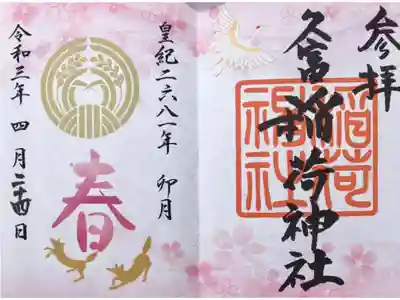 参拝
久富稲荷神社
稲荷
福社
皇紀二六八一年 卯月
春
令和三年 四月二十四日